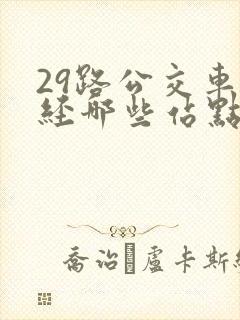 29路公交車
經那些佔點
喬治·盧卡斯經